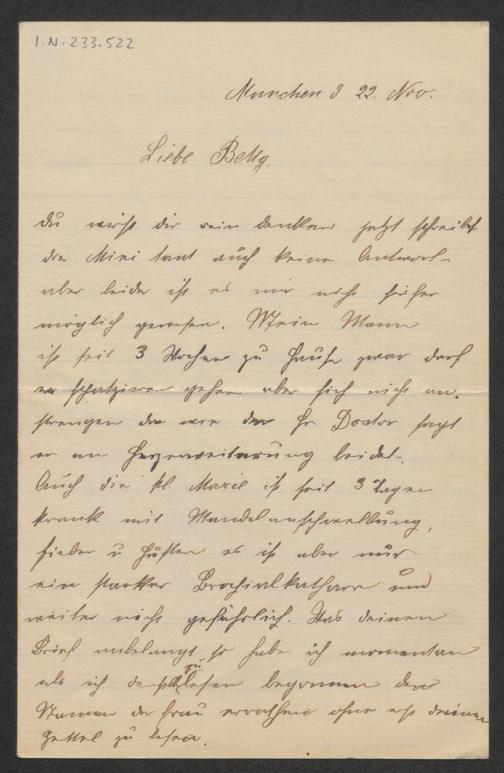 I.N. 233.522
München d 22. Nov.
Liebe Betty
du wirst dir denken jetzt schreibt
die Mini tant auch keine Antwort
aber leider ist es mir nicht früher
möglich gewesen. Mein Mann
ist seit 3 Wochen zu Hause zwar darf
er spatzieren gehen aber sich nicht an-
strengen da wie der Hr Doctor sagt
er an Herzerweiterung leidet.
Auch die kl. Marie ist seit 3 Tagen
krank mit Mandelanschwellung,
fieber u Husten es ist aber nur
ein starker Brochialkatharr und
weiter nicht gefährlich. Was deinen
Brief anbelangt so habe ich momentan
als ich zu lesen begonnen den
Namen der Frau errathen ohne erst deinen
Zettel zu lesen.